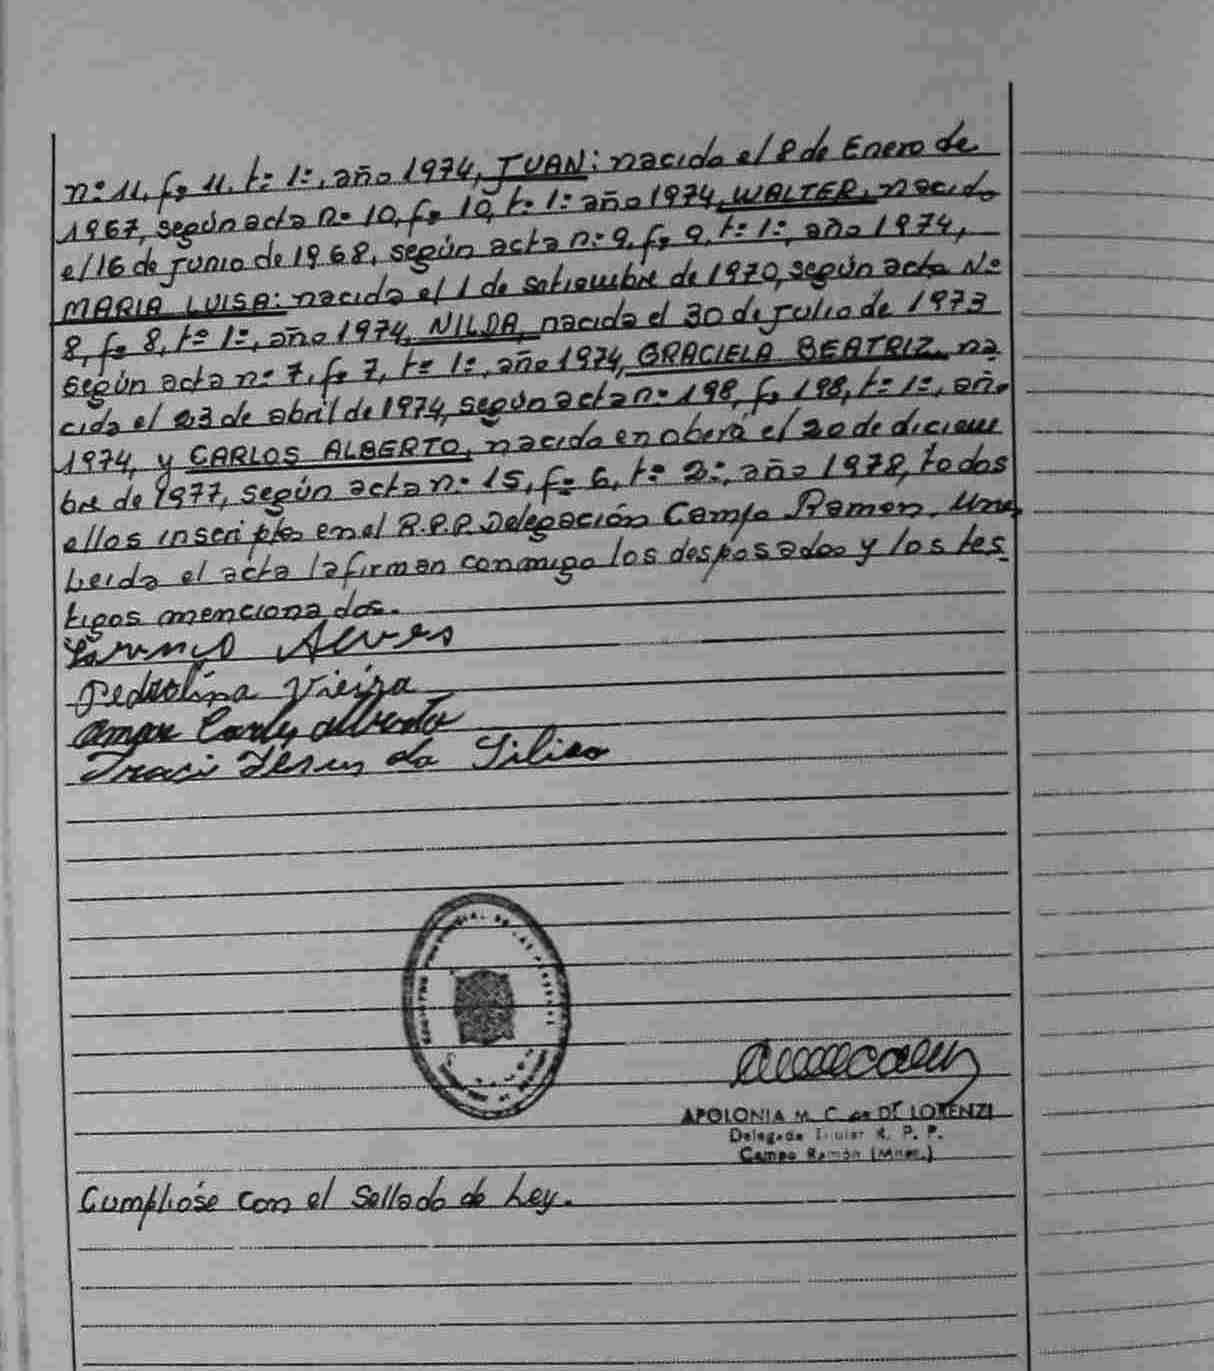 n:º 11, fº 11, t:º 1:º, año 1974, JUAN: nacido el 8 de Enero de
1967, según acta n:º 10, fº 10, t:º 1:º año 1974, WALTER, nacido
el 16 de junio de 1968, según acta n:º 9, fº 9, t:º 1:º, año 1974,
MARIA LUISA: nacida el 1 de setiembre de 1970, según acta Nº
8, fº 8, tº 1º, año 1974, NILDA, nacida el 30 de julio de 1973
según acta n:º 7, fº 7, tº 1:º, año 1974, GRACIELA BEATRIZ, na
cida el 23 de abril de 1974, según acta n:º 198, fº 198, t:º 1:º, año
1974, y CARLOS ALBERTO, nacido en oberá el 20 de diciem
bre de 1977, según acta n:º 15, fº 6, t:º 2:º, año 1978, todos
ellos inscriptos en el R.P.P. Delegación Campo Ramon, Mnes,
Leida el acta la firman conmigo los desposados y los tes
tigos mencionados.
Alves
Pedrolina Vieira
Carlos Alberto
Iraci Jesus da Silva
APOLONIA M. C. de DI LORENZI
Delegada Titular R. P. P.
Campo Ramón (Mnes.)
Cumplióse con el sellado de Ley.